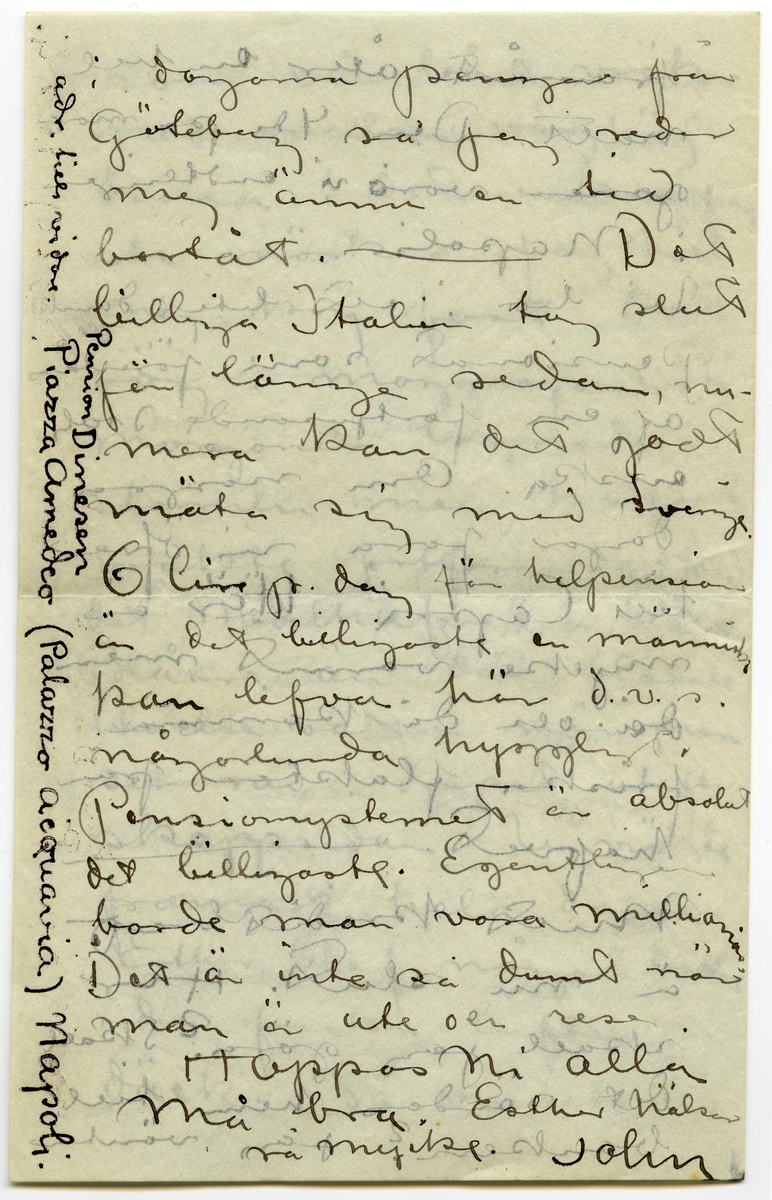 i dagarna pengar från
Göteborg så jag reder
mej ännu en tid
bortåt. — Det
billiga Italien tog slut
för länge sedan, nu-
mera kan det godt
mäta sig med Sverige.
6 lire pr. dag för helpension
är det billigaste en människa
kan lefva här d.v.s.
någorlunda hyggligt.
Pensionsystemet är absolut
det billigaste. Egentligen
borde man vara millionär.
Det är inte så dumt när
man är ute och reser.
Hoppas Ni alla
må bra. Esther hälsar
så mycke. John
adr. tills vidare.
Pension Dinesen
Piazza Amedeo (Palazzo Acquavia) Napoli.